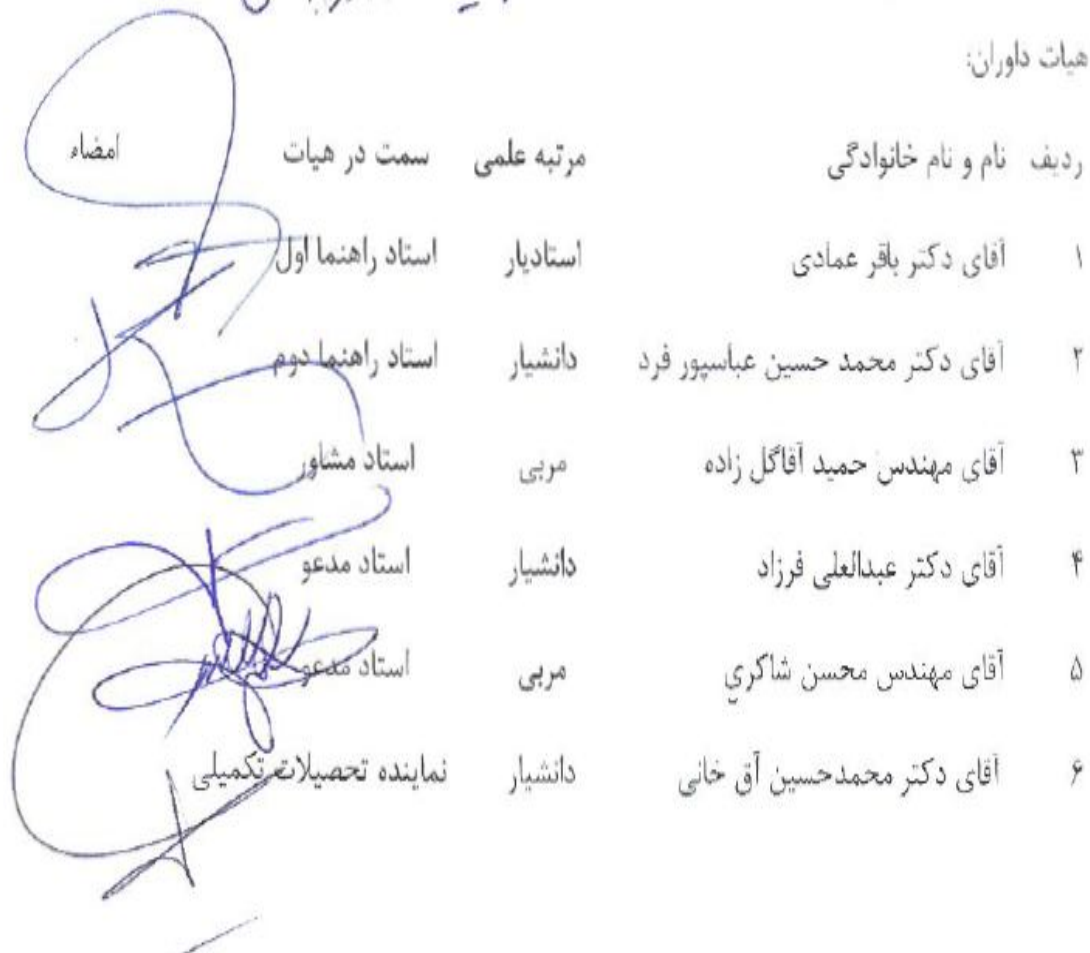 هیات داوران:
ردیف نام و نام خانوادگی مرتبه علمی سمت در هیات امضاء
۱ آقای دکتر باقر عمادی استادیار استاد راهنما اول
۲ آقای دکتر محمد حسین عباسپور فرد دانشیار استاد راهنما دوم
۳ آقای مهندس حمید آقاگل زاده مربی استاد مشاور
۴ آقای دکتر عبدالعلی فرزاد دانشیار استاد مدعو
۵ آقای مهندس محسن شاکري مربی استاد مدعو
۶ آقای دکتر محمدحسین آق خانی دانشیار نماینده تحصیلات تکمیلی